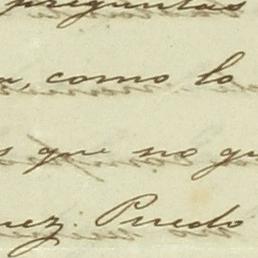 preguntas
, como lo
que no
Puedo